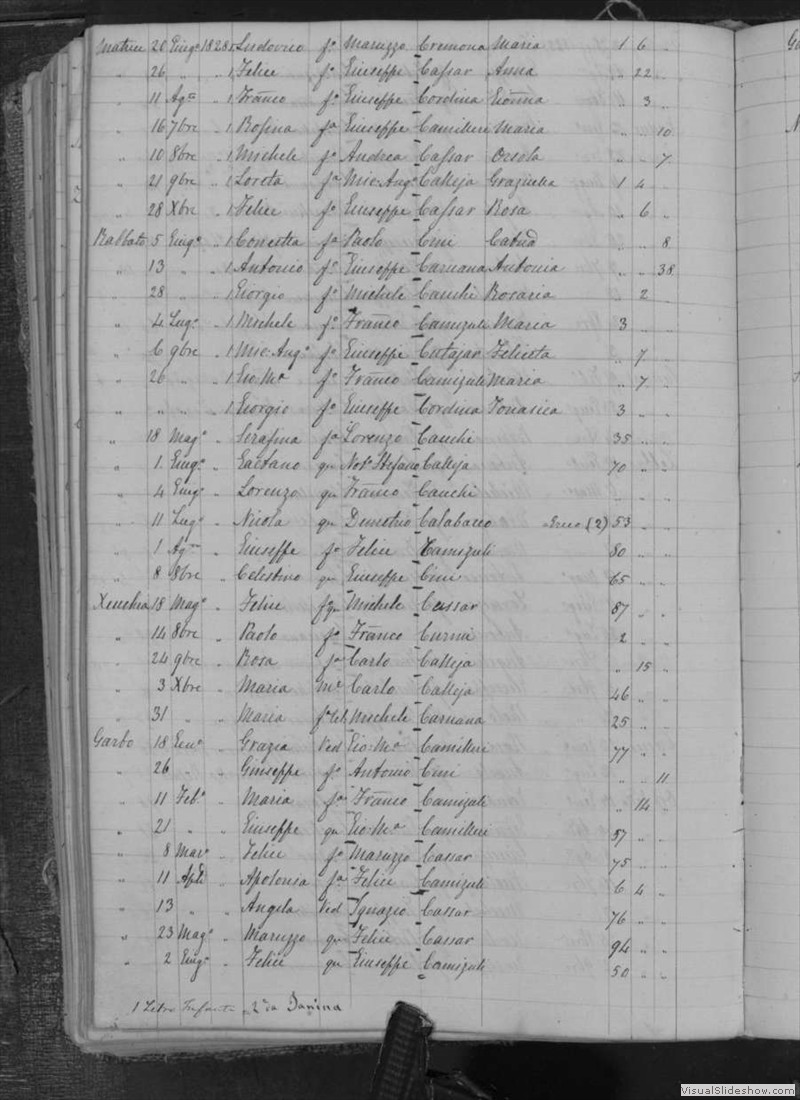 Matrice 20 Giug° 1828 1 Ludovico f° Maruzzo Cremona Maria 1 6 "
" 26 " " 1 Felice f° Giuseppe Cassar Anna " 22 "
" 11 Ag° " 1 Franco f° Giuseppe Cordina Gioanna " 3 "
" 16 7bre " 1 Rosina fa Giuseppe Camilleri Maria " " 10
" 10 8bre " 1 Michele f° Andrea Cassar Orsola " " 7
" 21 9bre " 1 Loreta fa Mic: Ang° Calleja Graziella 1 4 "
" 28 Xbre " 1 Felice f° Giuseppe Cassar Rosa " 6 "
Rabbato 5 Giug° " 1 Concetta fa Paolo Cini " " 8
" 13 " " 1 Antonio f° Giuseppe Caruana Antonia " " 38
" 28 " " 1 Giorgio f° Michele Cauchi Rosaria " 2 "
" 4 Lug° " 1 Michele f° Franco Camizuli Maria 3 " "
" 6 9bre " 1 Mic: Ang° f° Giuseppe Cutajar Felicita " 7 "
" 26 " " 1 Gio Ma f° Franco Camizuli Maria " 7 "
" " " " 1 Giorgio f° Giuseppe Cordina 3 " "
" 18 Mag° " Serafina fa Lorenzo Cauchi 35 " "
" 1 Giug° " Gaetano qm Not° Stefano Calleja 70 " "
" 4 Giug° " Lorenzo qm Franco Cauchi " " "
" 11 Lug° " Nicola qm Demetrio Calabacco Greco (2) 53 " "
" 1 Ag° " Giuseppe f° Felice Camizuli 80 " "
" 8 8bre " Celestino qm Giuseppe Cini 65 " "
Xeuchia 18 Mag° " Felice Michele Cassar 87 " "
" 14 8bre " Paolo f° Franco Curmi 2 " "
" 24 9bre " Rosa fa Carlo Calleja " 15 "
" 3 Xbre " Maria Me Carlo Calleja 46 " "
" 31 " " Maria Michele Caruana 25 " "
Garbo 18 Gen° " Grazia Ved Gio: Ma Camilleri 77 " "
" 26 " " Giuseppe f° Antonio Cini " " 11
" 11 Feb° " Maria fa Franco Camizuli " 14 "
" 21 " " Giuseppe qm Gio: Ma Camilleri 57 " "
" 8 Mar° " Felice f° Maruzzo Cassar 75 " "
" 11 Aple " Apolonia fa Felice Camizuli 6 4 "
" 13 " " Angela Ved Ignazio Cassar 76 " "
" 23 Mag° " Maruzzo qm Felice Cassar 94 " "
" 2 Giug° " Felice qm Giuseppe Camizuli 50 " "
1 Infanti 2 da Janina
VisualSlideshow.com